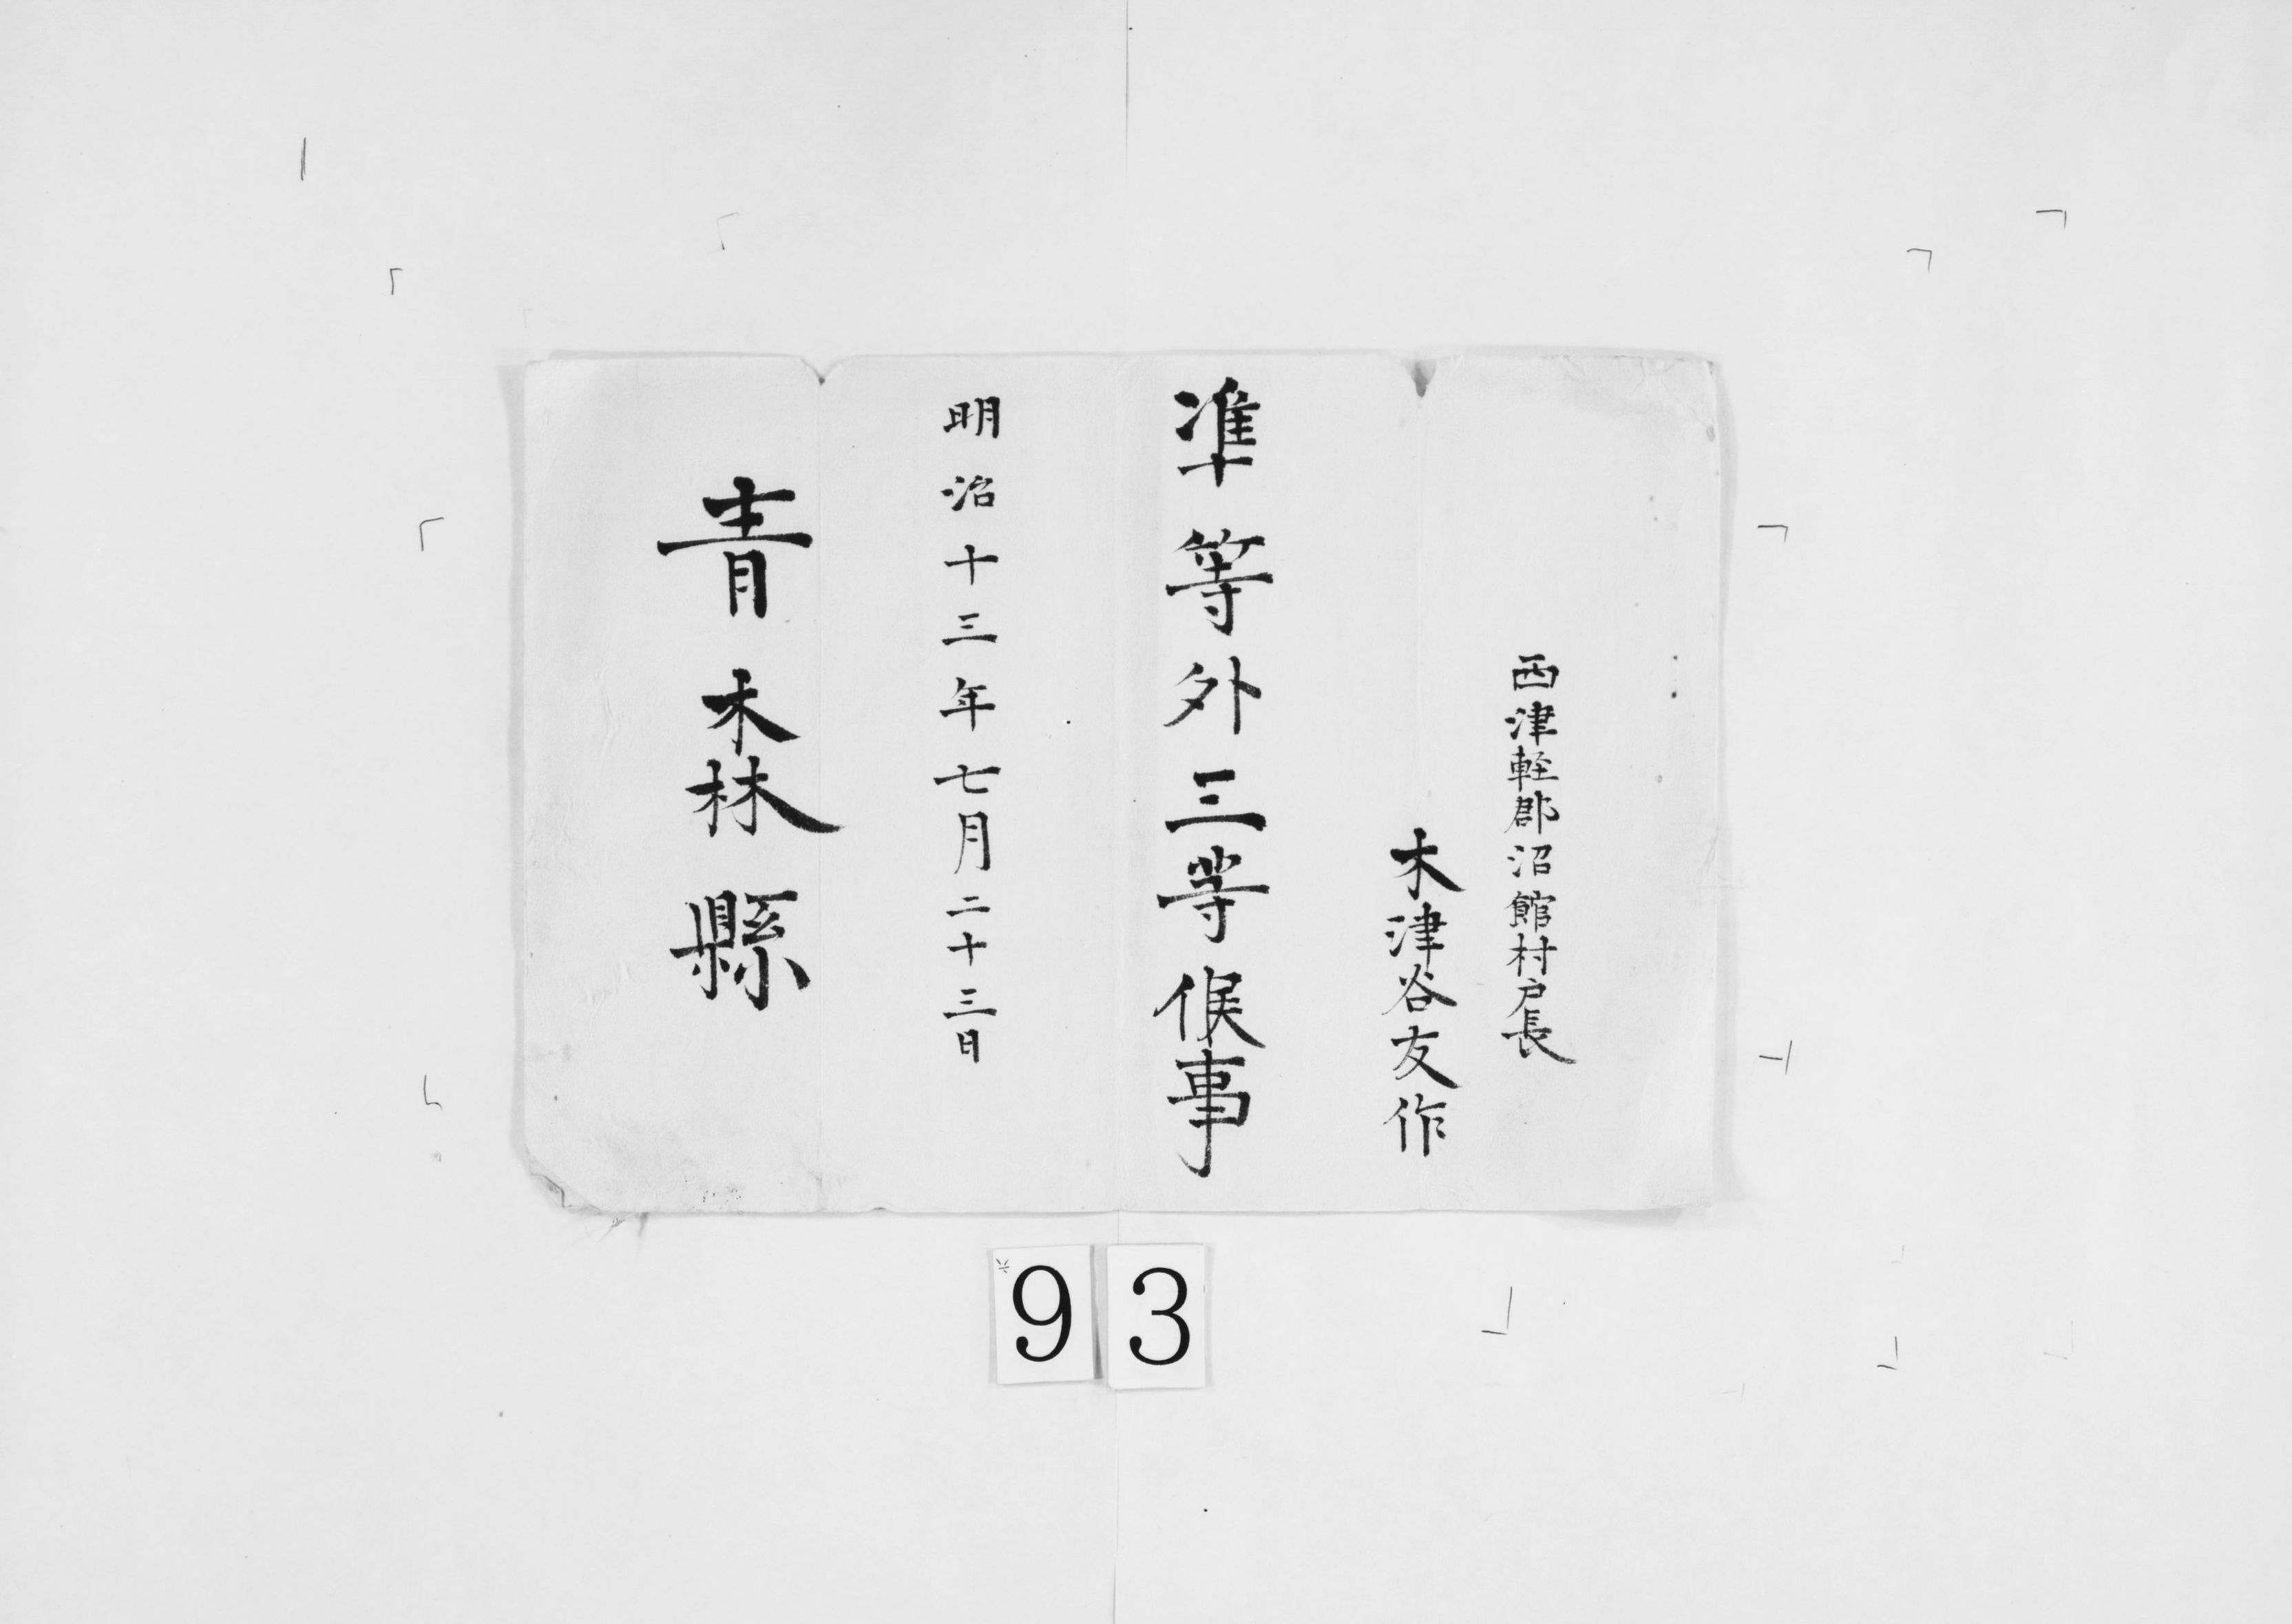 西津軽郡沼館村戸長
木津谷友作
準等外三等候事
明治十三年七月二十三日
青森縣
93